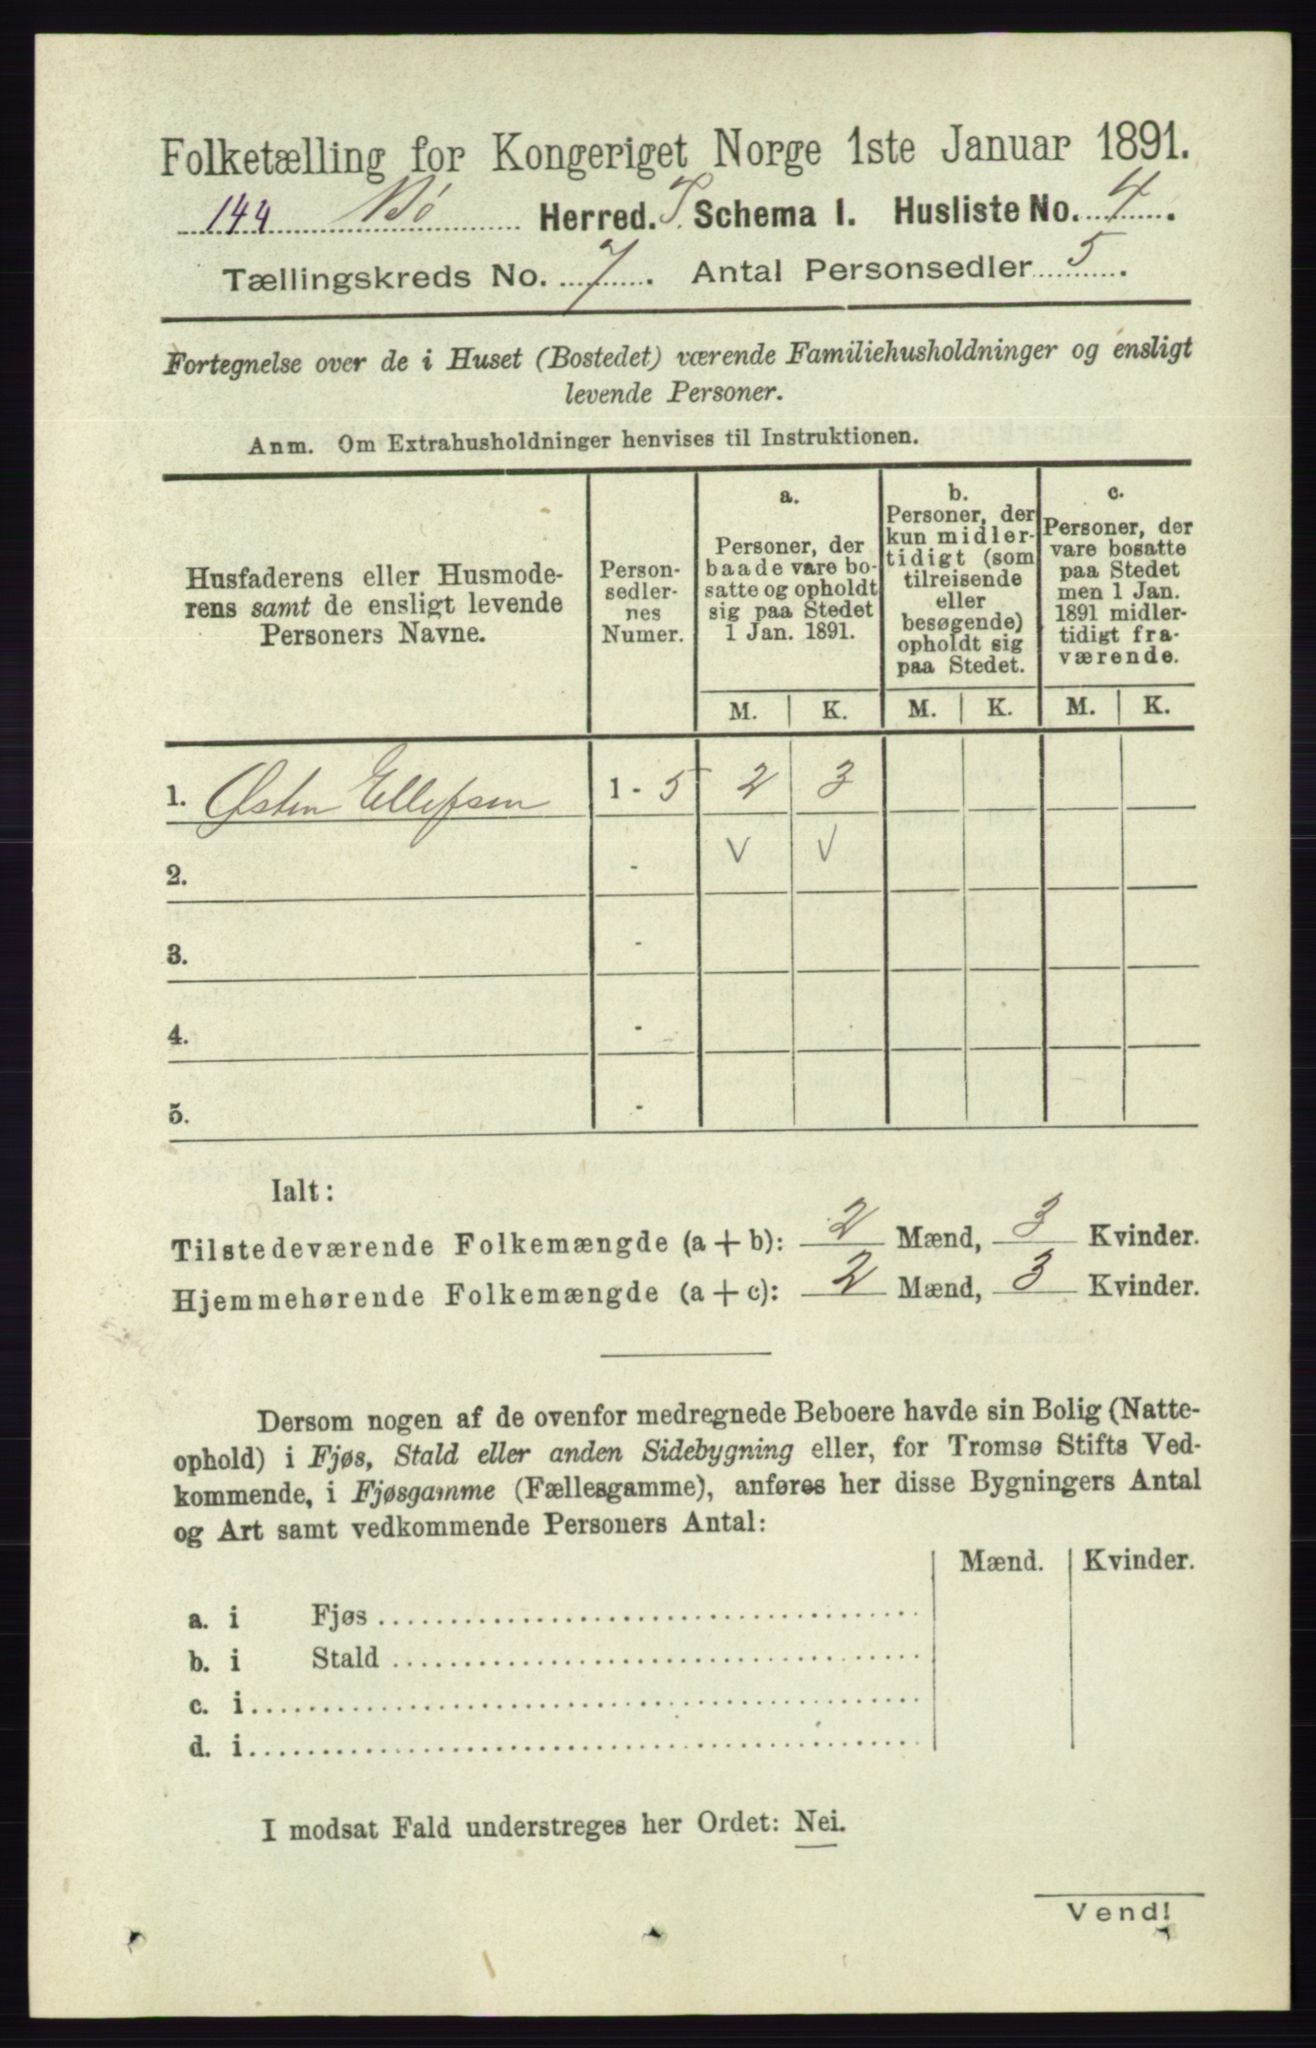 Folketælling for Kongeriget Norge 1ste Januar 1891.
144 Bø Herred. T. Schema 1. Husliste No. 4.
Tællingskreds No. 7. Antal Personsedler 5.
Fortegnelse over de i Huset (Bostedet) værende Familiehusholdninger og ensligt
levende Personer.
Anm. Om Extrahusholdninger henvises til Instruktionen.
Husfaderens eller Husmode-
rens samt de ensligt levende
Personers Navne.
Person-
sedler-
nes
Numer.
a.
Personer, der
baade vare bo-
satte og opholdt
sig paa Stedet
1 Jan. 1891.
b.
Personer, der
kun midler-
tidigt (som
tilreisende
eller
besøgende)
opholdt sig
paa Stedet.
c.
Personer, der
vare bosatte
paa Stedet
men 1 Jan.
1891 midler-
tidigt fra-
værende.
M. K. M. K. M. K.
1. Østen Ellefsen 1 - 5 2 3
2. - V V
3. -
4. -
5. -
Ialt:
Tilstedeværende Folkemængde (a + b): 2 Mænd, 3 Kvinder.
Hjemmehørende Folkemængde (a + c): 2 Mænd, 3 Kvinder.
Dersom nogen af de ovenfor medregnede Beboere havde sin Bolig (Natte-
ophold) i Fjøs, Stald eller anden Sidebygning eller, for Tromsø Stifts Ved-
kommende, i Fjøsgamme (Fællesgamme), anføres her disse Bygningers Antal
og Art samt vedkommende Personers Antal:
Mænd. Kvinder.
a. i Fjøs
b. i Stald
c. i
d. i
I modsat Fald understreges her Ordet: Nei.
Vend!